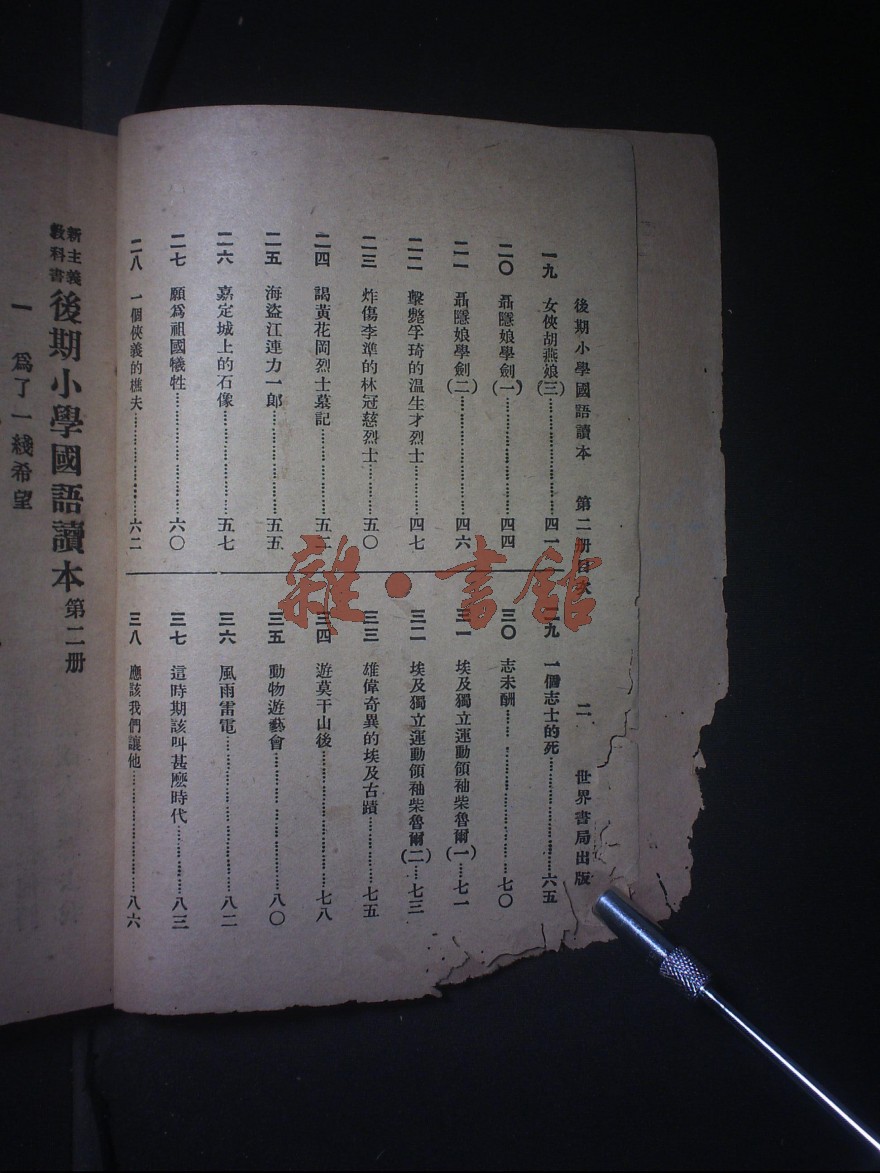 後期小學國語讀本 第二册目次 二 世界書局出版
一九 女俠胡燕娘(三)……四一
二〇 聶隱娘學劍(一)……四四
二一 聶隱娘學劍(二)……四六
二二 擊斃孚琦的温生才烈士……四七
二三 炸傷李準的林冠慈烈士……五〇
二四 謁黃花岡烈士墓記……五二
二五 海盜江連力一郎……五五
二六 嘉定城上的石像……五七
二七 願爲祖國犧牲……六〇
二八 一個俠義的樵夫……六二
二九 一個志士的死……六五
三〇 志未酬……七〇
三一 埃及獨立運動領袖柴魯爾(一)……七一
三二 埃及獨立運動領袖柴魯爾(二)……七三
三三 雄偉奇異的埃及古蹟……七五
三四 遊莫干山後……七八
三五 動物遊藝會……八〇
三六 風雨雷電……八二
三七 這時期該叫甚麽時代……八三
三八 應該我們讓他……八六
新主義教科書 後期小學國語讀本 第二册
一 爲了一綫希望
雜·書館